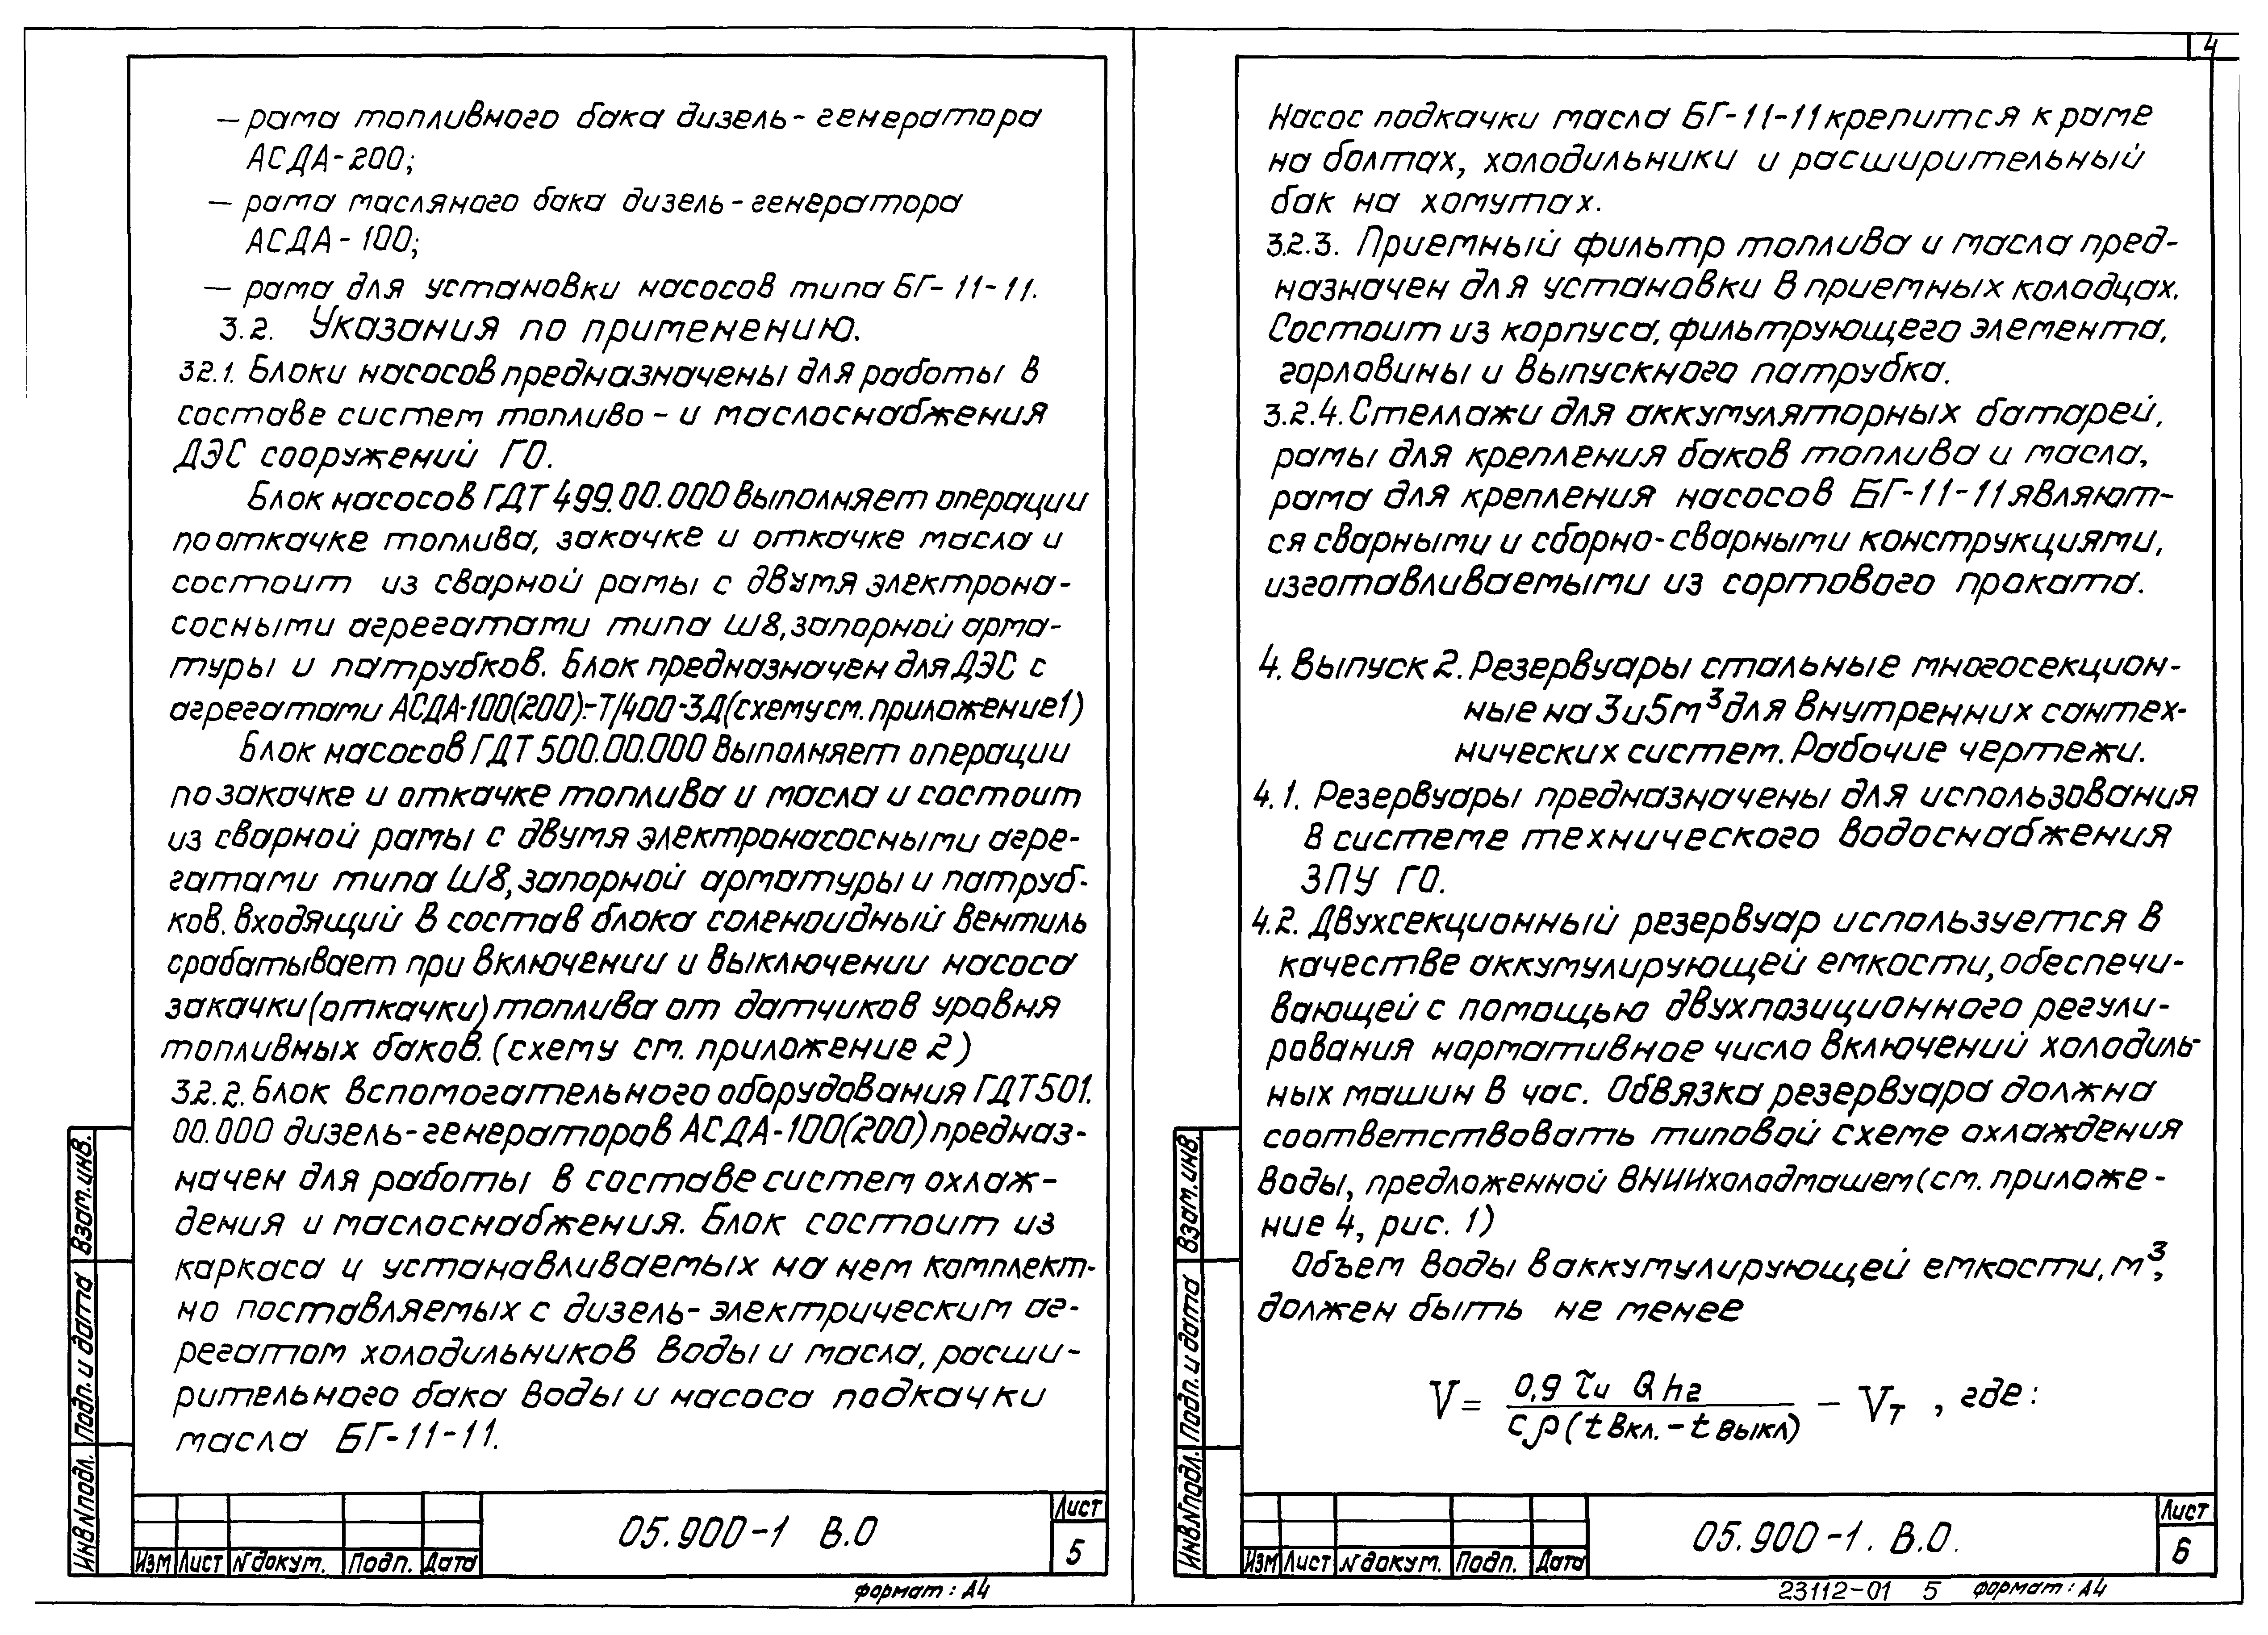 — рама топливного бака дизель-генератора
АСДА-200;
— рама масляного бака дизель-генератора
АСДА-100;
— рама для установки насосов типа БГ-11-11.
3.2. Указания по применению.
3.2.1. Блоки насосов предназначены для работы в
составе систем топливо- и маслоснабжения
ДЭС сооружений ГО.
Блок насосов ГДТ 499.00.000 выполняет операции
по откачке топлива, закачке и откачке масла и
состоит из сварной рамы с двумя электрона-
сосными агрегатами типа Ш8, запорной арма-
туры и патрубков. Блок предназначен для ДЭС с
агрегатами АСДА-100(200)-Т/400-3Д (схему см. приложение 1)
Блок насосов ГДТ 500.00.000 выполняет операции
по закачке и откачке топлива и масла и состоит
из сварной рамы с двумя электронасосными агре-
гатами типа Ш8, запорной арматуры и патруб-
ков. Входящий в состав блока соленоидный вентиль
срабатывает при включении и выключении насоса
закачки (откачки) топлива от датчиков уровня
топливных баков. (схему см. приложение 2)
3.2.2. Блок вспомогательного оборудования ГДТ 501.
00.000 дизель-генераторов АСДА-100(200) предназ-
начен для работы в составе систем охлаж-
дения и маслоснабжения. Блок состоит из
каркаса и устанавливаемых на нем комплект-
но поставляемых с дизель-электрическим аг-
регатом холодильников воды и масла, расши-
рительного бака воды и насоса подкачки
масла БГ-11-11.
Взам. инв.
Подп. и дата
Инв N подл.
Изм Лист N докум. Подп. Дата
05.900-1 В.0
Лист
5
формат: А4
4
Насос подкачки масла БГ-11-11 крепится к раме
на болтах, холодильники и расширительный
бак на хомутах.
3.2.3. Приемный фильтр топлива и масла пред-
назначен для установки в приемных колодцах.
Состоит из корпуса, фильтрующего элемента,
горловины и выпускного патрубка.
3.2.4. Стеллажи для аккумуляторных батарей,
рамы для крепления баков топлива и масла,
рама для крепления насосов БГ-11-11 являют-
ся сварными и сборно-сварными конструкциями,
изготавливаемыми из сортового проката.
4. Выпуск 2. Резервуары стальные многосекцион-
ные на 3 и 5 м³ для внутренних сантех-
нических систем. Рабочие чертежи.
4.1. Резервуары предназначены для использования
в системе технического водоснабжения
ЗПУ ГО.
4.2. Двухсекционный резервуар используется в
качестве аккумулирующей емкости, обеспечи-
вающей с помощью двухпозиционного регули-
рования нормативное число включений холодиль-
ных машин в час. Обвязка резервуара должна
соответствовать типовой схеме охлаждения
воды, предложенной ВНИИхолодмашем (см. приложе-
ние 4, рис. 1)
Объем воды в аккумулирующей емкости, м³,
должен быть не менее
V = 0,9 τи Q hг / cρ (t вкл. - t выкл) - Vт , где:
Взам. инв.
Подп. и дата
Инв N подл.
Изм Лист N докум. Подп. Дата
05.900-1. В.0.
Лист
6
23112-01 5 формат: А4